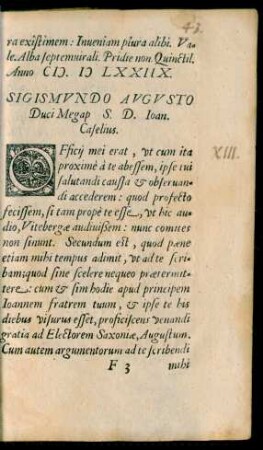 43.
ra existimem: Inueniam plura alibi. Va-
le. Alba septemuirali. Pridie non. Quinctil.
Anno CIƆ. IƆ LXXIIX.
SIGISMVNDO AVGVSTO
Duci Megap S. D. Ioan.
Caselius.
XIII.
OFficij mei erat, vt cum ita
proximè à te abessem, ipse tui
salutandi caussa & obseruan-
di accederem: quod profecto
fecissem, si tam propè te esse, vt hic au-
dio, Vitebergæ audiuissem: nunc comites
non sinunt. Secundum est, quod pæne
etiam mihi tempus adimit, vt ad te scri-
bam: quod sine scelere nequeo prætermit-
tere: cum & sim hodie apud principem
Ioannem fratrem tuum, & ipse te his
diebus visurus esset, proficiscens venandi
gratia ad Electorem Saxoniæ, Augustum.
Cum autem argumentorum ad te scribendi
F 3 mihi